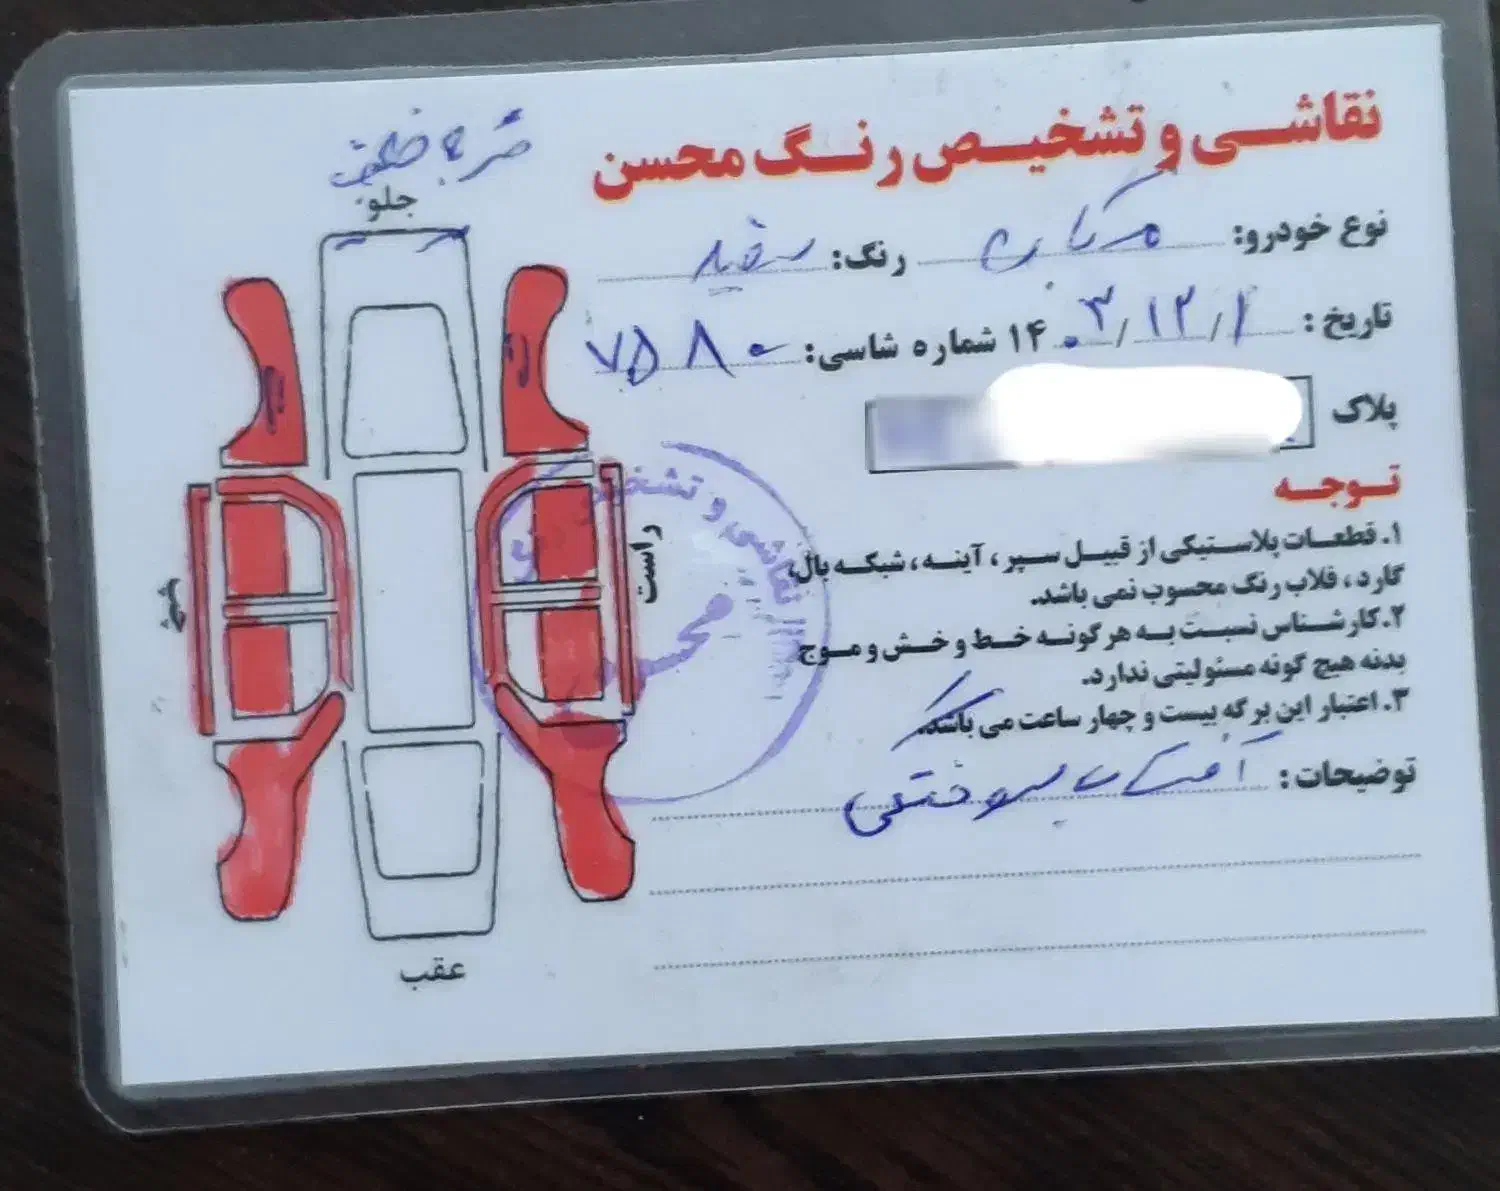 نقاشی و تشخیص رنگ محسن
نوع خودرو: رنگ: سفید
تاریخ : ۱۴۰۳/۱۲/۱ شماره شاسی: ۷۵۸۰
پلاک
توجه
۱. قطعات پلاستیکی از قبیل سپر ، آینه ، شبکه بال
گارد ، قلاب رنگ محسوب نمی باشد.
۲. کارشناس نسبت به هرگونه خط و خش و موج
بدنه هیچ گونه مسئولیتی ندارد.
۳. اعتبار این برگه بیست و چهار ساعت می باشد.
توضیحات : آفتاب سوختگی
جلو
راست
چپ
عقب
نقاشی و تشخیص
محسن